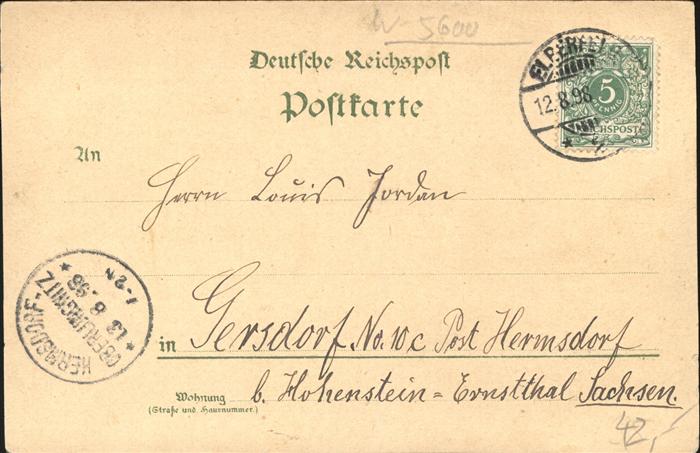 W-5600
Deutsche Reichspost
Postkarte
ELBERFELD
12.8.98
5
PFENNIG
REICHSPOST
An
Herrn Louis Jordan
HERMSDORF-
OBERLUNGWITZ
13 8 98
1-2N
in Gersdorf No. 10c Post Hermsdorf
b. Hohenstein=Ernstthal Sachsen.
Wohnung
(Straße und Hausnummer.)
42,-